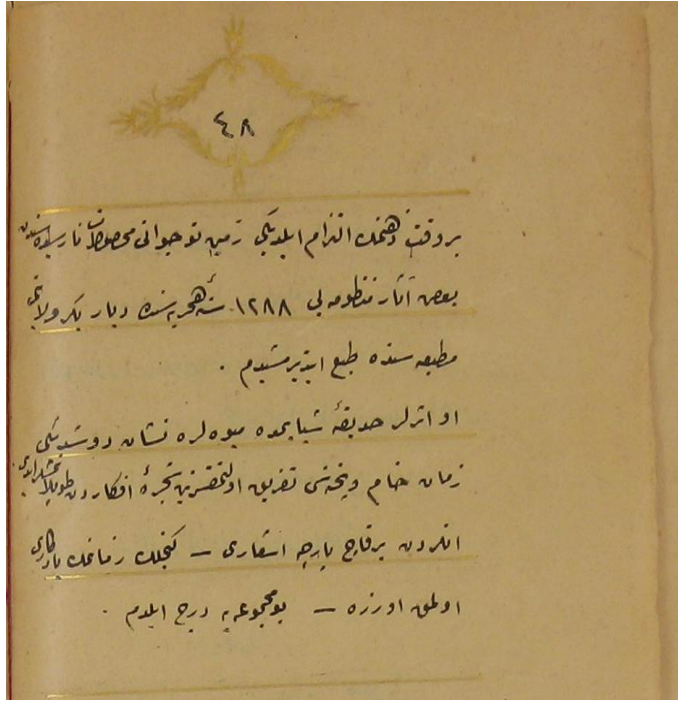 ٤٨
بر وقت ذهنمك التزام ايلديكى زمين نوجوانى محصولات نارسيده سندن
بعض آثار منظومه يى ١٢٨٨ سنهٔ هجريه سنده ديار بكر ولايتى
مطبعه سنده طبع ايتديرمشيدم .
او اثرلر حديقهٔ شبابمده ميوه لره نشان دوشديكى
زمان خام و پخته سى تفريق اولنمقسزين شجرهٔ افكاردن طوپلانمشلرايدى
انلردن برقاچ پارچه اشعارى — كنجلك زمانمك يادكارى
اولمق اوزره — بو مجموعه يه درج ايلدم .